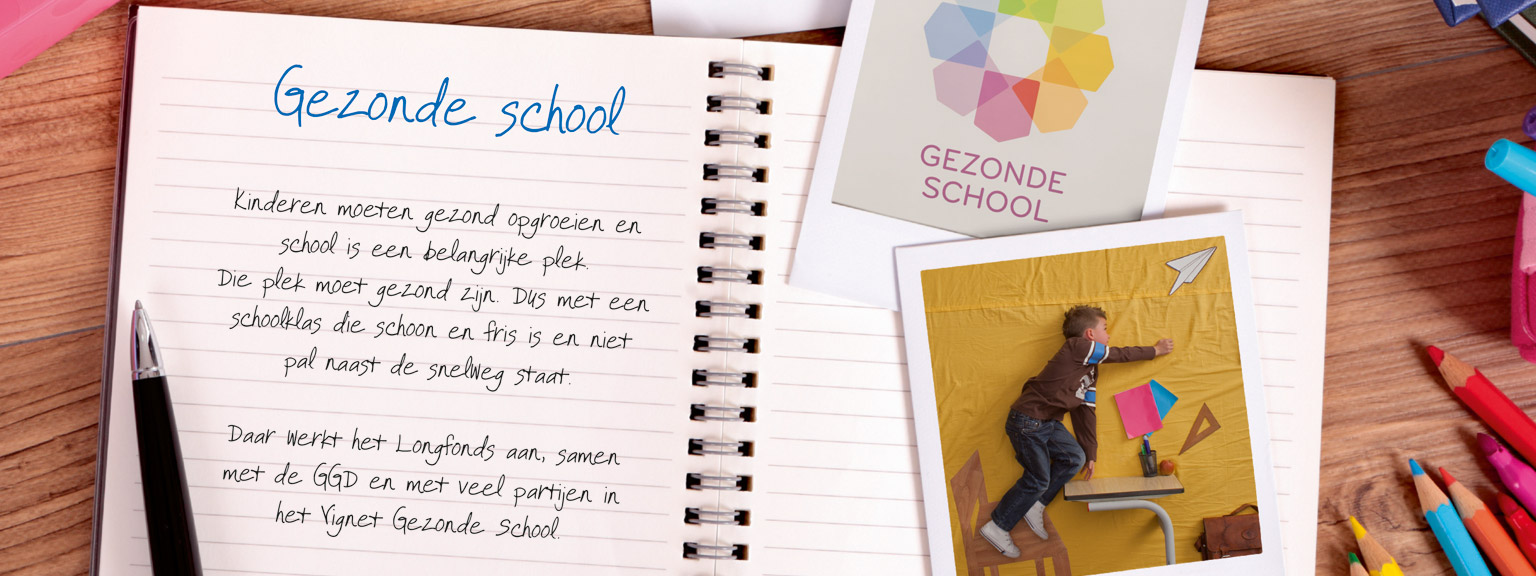 Gezonde school
Kinderen moeten gezond opgroeien en
school is een belangrijke plek.
Die plek moet gezond zijn. Dus met een
schoolklas die schoon en fris is en niet
pal naast de snelweg staat.
Daar werkt het Longfonds aan, samen
met de GGD en met veel partijen in
het Vignet Gezonde School.
GEZONDE
SCHOOL